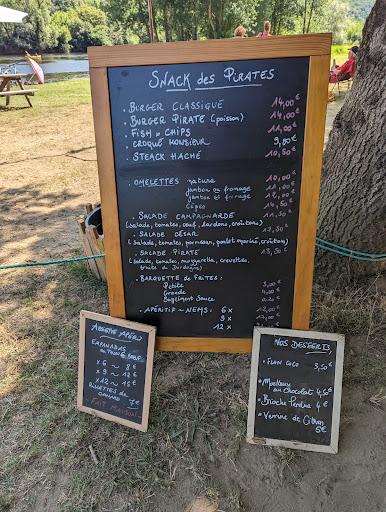 SNACK des PIRATES
. BURGER CLASSIQUE 14,00 €
. BURGER PIRATE (poisson) 14,00 €
. FISH n CHIPS 14,00 €
. CROQUE MONSIEUR 9,50 €
. STEACK HACHÉ 10,50 €
. OMELETTES nature 10,00 €
jambon ou fromage
jambon et fromage
Cèpes 14,50 €
. SALADE CAMPAGNARDE 11,50 €
(salade, tomates, oeuf, lardons, croûtons)
. SALADE CÉSAR 13,50 €
(Salade, tomates, parmesan, poulet mariné, croûtons)
. SALADE PIRATE 13,50 €
(salade, tomates, mozzarella, crevettes,
truite de Dordogne)
. BARQUETTE de FRITES:
Petite 3,00 €
Grande
Supplément Sauce
. APÉRITIF ~ NEMS: 6 x
9 x
12 x
EMPANADAS
au THON & BOEUF
x 6 ~ 8 €
x 9 ~ 12 €
x 12 ~ 15 €
RILLETTES de
CANARD 7 €
FAIT MAISON
NOS DESSERTS
. FLAN COCO 3,50
. Moelleux
au chocolat 4,50
. Brioche Perdue 4 €
. Verrine de Citron
5 €